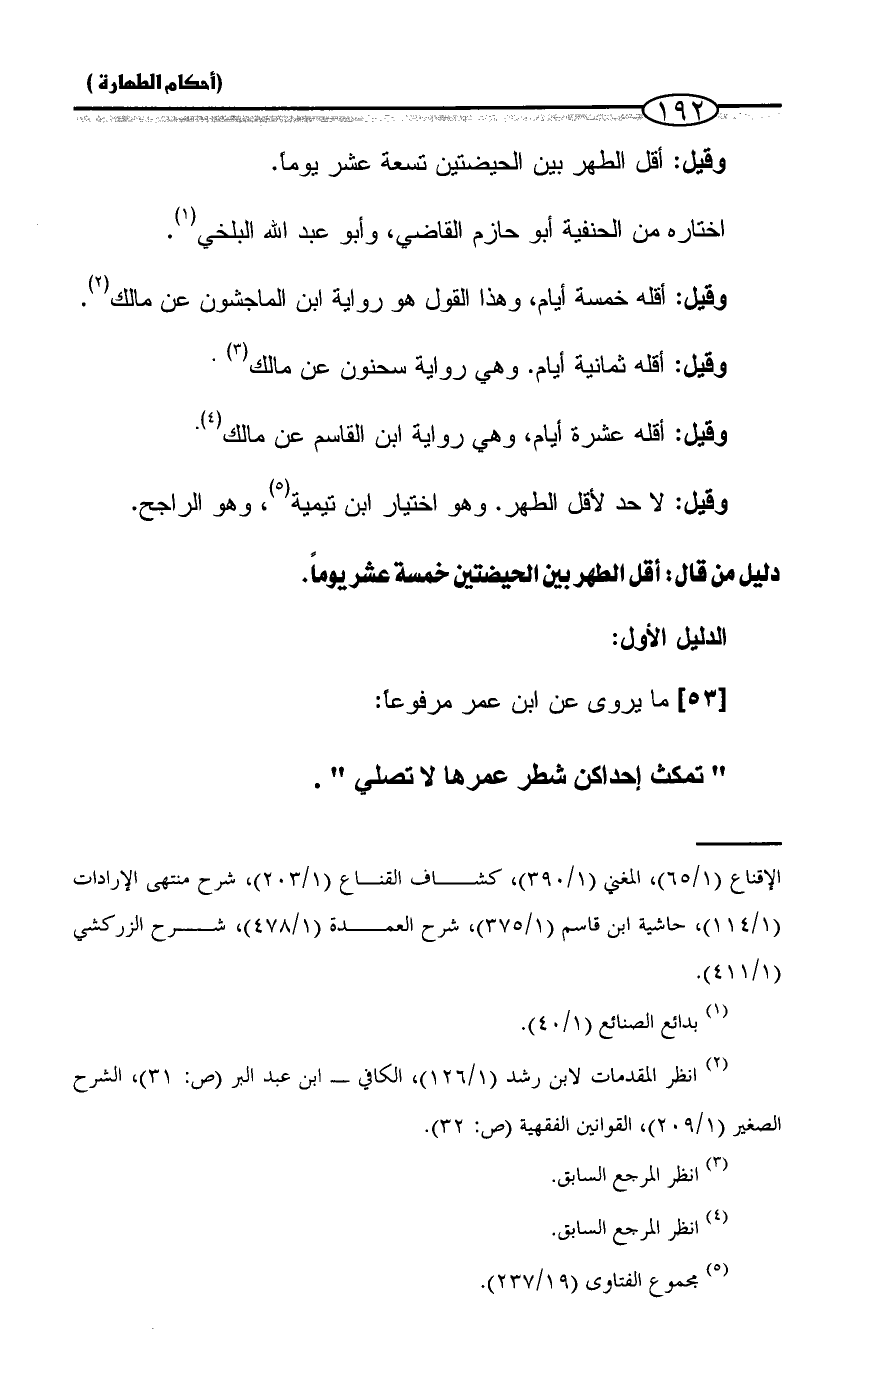 (أحكام الطهارة)
١٩٢
وقيل: أقل الطهر بين الحيضتين تسعة عشر يوماً.
اختاره من الحنفية أبو حازم القاضي، وأبو عبد الله البلخي(١).
وقيل: أقله خمسة أيام، وهذا القول هو رواية ابن الماجشون عن مالك(٢).
وقيل: أقله ثمانية أيام. وهي رواية سحنون عن مالك(٣) .
وقيل: أقله عشرة أيام، وهي رواية ابن القاسم عن مالك(٤).
وقيل: لا حد لأقل الطهر. وهو اختيار ابن تيمية(٥)، وهو الراجح.
دليل من قال: أقل الطهر بين الحيضتين خمسة عشر يوماً.
الدليل الأول:
[٥٣] ما يروى عن ابن عمر مرفوعاً:
" تمكث إحداكن شطر عمرها لا تصلي " .
الإقناع (٦٥/١)، المغني (٣٩٠/١)، كشاف القناع (٢٠٣/١)، شرح منتهى الإرادات
(١١٤/١)، حاشية ابن قاسم (٣٧٥/١)، شرح العمدة (٤٧٨/١)، شرح الزركشي
(٤١١/١).
(١) بدائع الصنائع (٤٠/١).
(٢) انظر المقدمات لابن رشد (١٢٦/١)، الكافي – ابن عبد البر (ص: ٣١)، الشرح
الصغير (٢٠٩/١)، القوانين الفقهية (ص: ٣٢).
(٣) انظر المرجع السابق.
(٤) انظر المرجع السابق.
(٥) مجموع الفتاوى (٢٣٧/١٩).